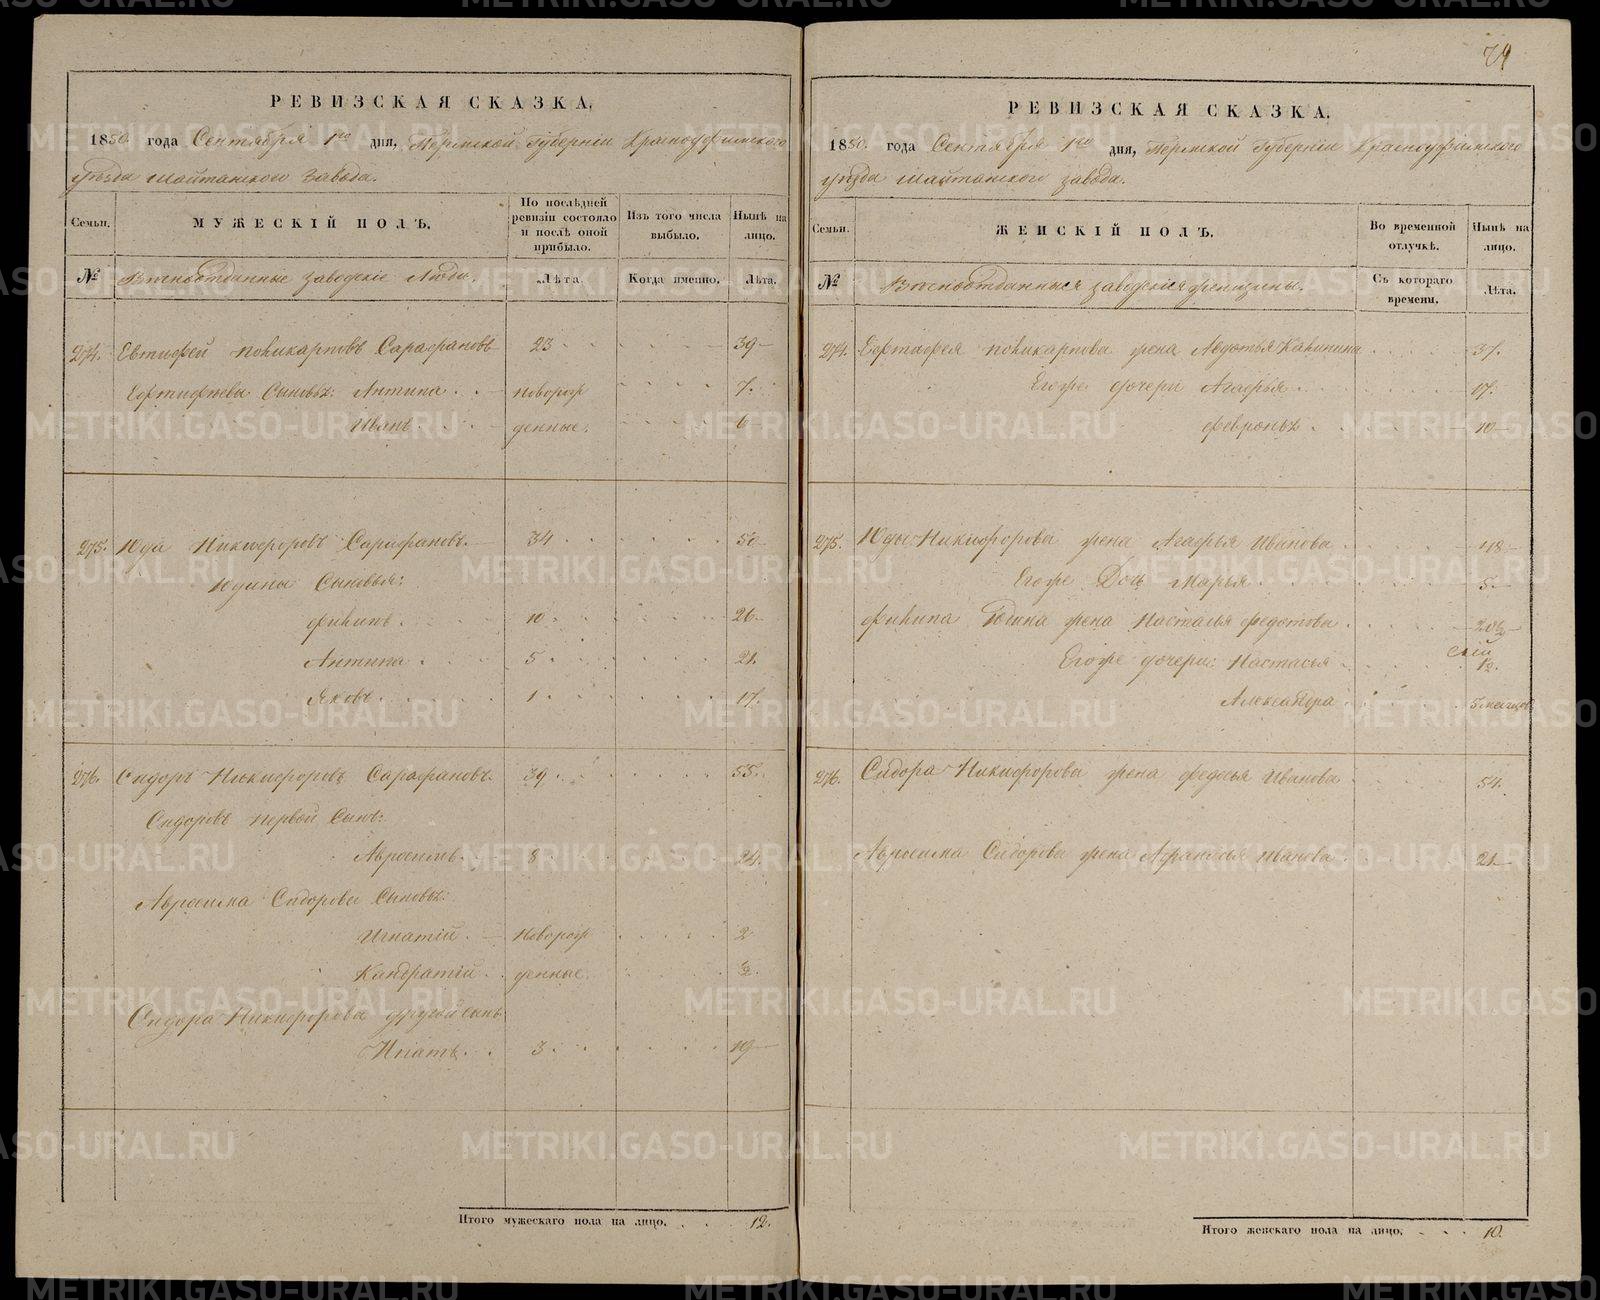 79
РЕВИЗСКАЯ СКАЗКА,
1850 года Сентября 1го дня, Пермской Губерніи Красноуфимского
уѣзда Шайтанского завода.
Семьи.
МУЖЕСКІЙ ПОЛЪ.
По послѣдней ревизіи состояло и послѣ оной прибыло.
Изъ того числа выбыло.
Нынѣ на лицо.
№
заводскіе Люди.
Лѣта.
Когда именно.
Лѣта.
274. Евтифей Поликарповъ Сарафановъ 23 39
Евтифеевы Сыновья: Антипа новорож 7.
Иванъ денные. 6
275. Юда Никифоровъ Сарафановъ. 34 50
Юдины Сыновья:
Филипъ. 10 26
Антипа 5 21.
Яковъ 1 17.
276. Сидоръ Никифоровъ Сарафановъ. 39 55.
Сидоровъ первой Сынъ:
Авросимъ. 8 24.
Авросима Сидорова Сыновья:
Игнатій новорож 2
Кандратій денные. ½.
Сидора Никифорова другой сынъ
Игнатъ. 3 19
Итого мужескаго пола на лицо. 12.
РЕВИЗСКАЯ СКАЗКА.
1850. года Сентября 1го дня, Пермской Губерніи Красноуфимского
уѣзда Шайтанского завода.
Семьи.
ЖЕНСКІЙ ПОЛЪ.
Во временной отлучкѣ.
Нынѣ на лицо.
№
заводскія женщины.
Съ котораго времени.
Лѣта.
274. Поликарпова жена Авдотья Калинина 37.
Егоже дочери Агафья 17.
Февронья 10
275. Юды Никифорова жена Агафья Иванова 48
Егоже Дочь Марья 5.
Филипа Юдина жена Настасья Федотова
Егоже дочери: Настасья 1½.
Александра 5 месяцовъ
276. Сидора Никифорова жена Федосья Иванова 54.
Авросима Сидорова жена Афанасья Иванова 21
Итого женскаго пола на лицо. 10.
METRIKI.GASO-URAL.RU